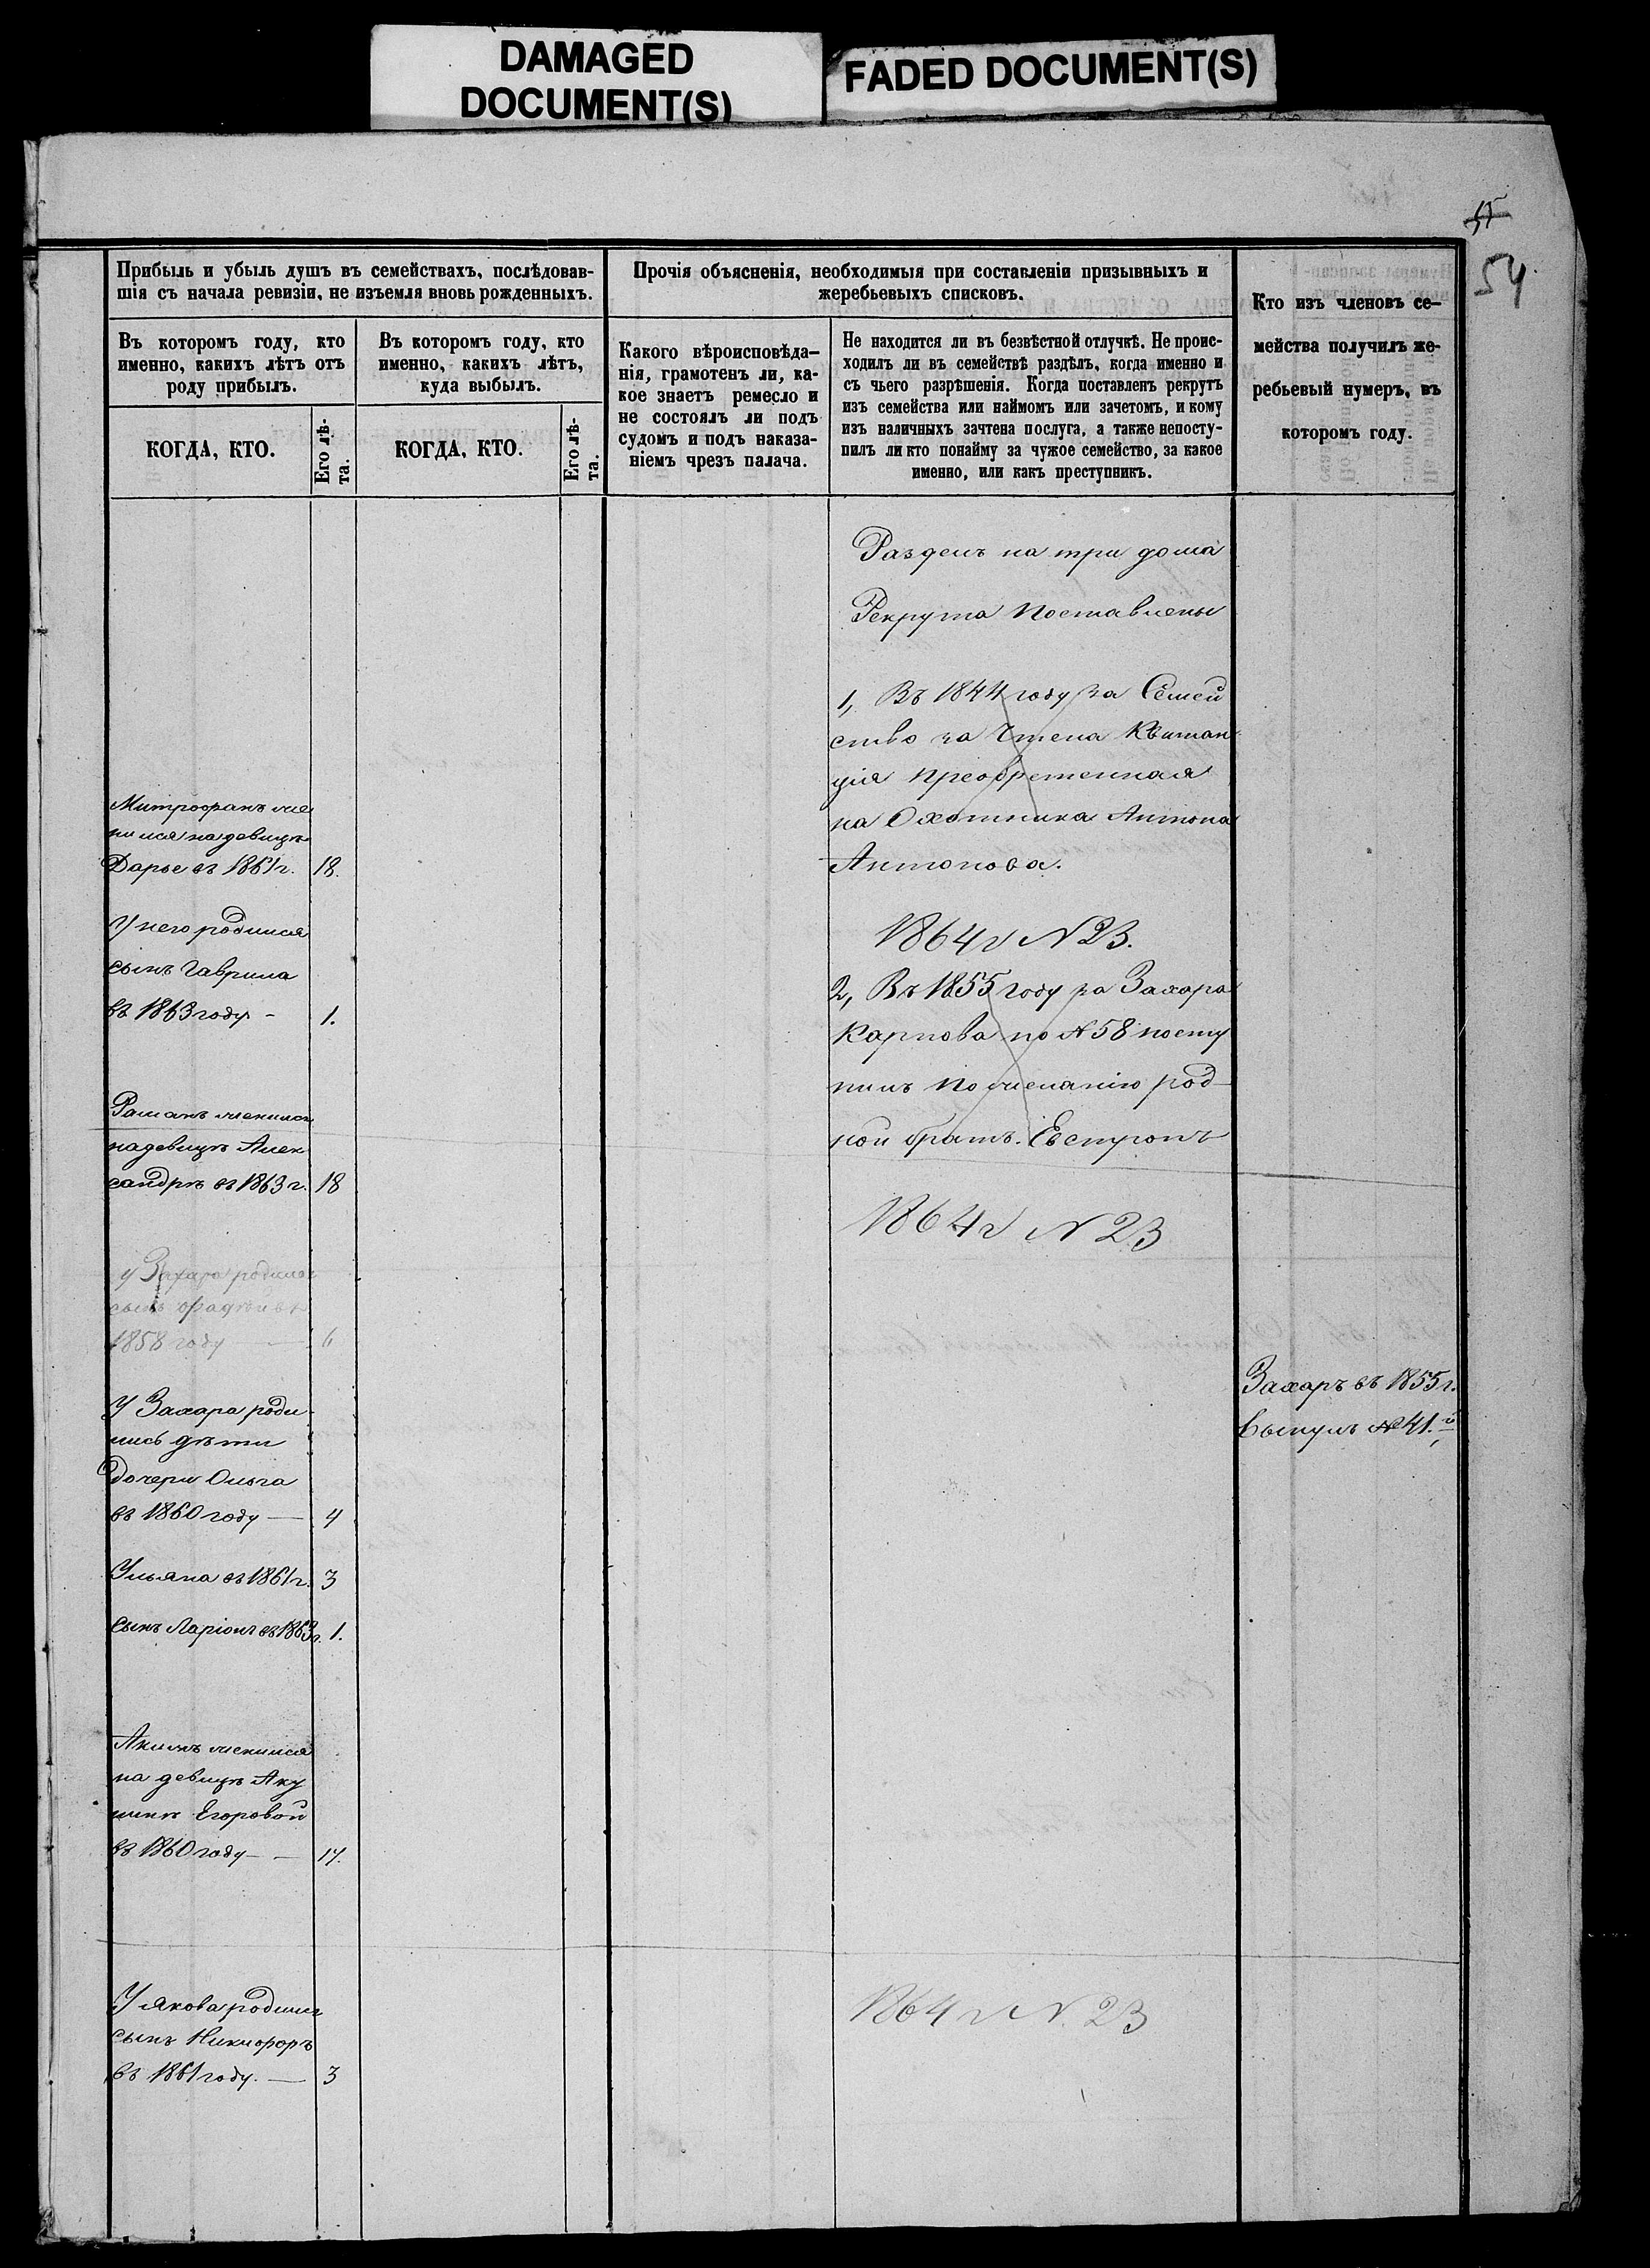 DAMAGED
DOCUMENT(S)
FADED DOCUMENT(S)
54
Прибыль и убыль душъ въ семействахъ, послѣдовав-
шія съ начала ревизіи, не изъемля вновь рожденныхъ.
Въ которомъ году, кто
именно, какихъ лѣтъ отъ
роду прибылъ.
КОГДА, КТО.
Его лѣ-
та.
Въ которомъ году, кто
именно, какихъ лѣтъ,
куда выбылъ.
КОГДА, КТО.
Его лѣ-
та.
Прочія объясненія, необходимыя при составленіи призывныхъ и
жеребьевыхъ списковъ.
Какого вѣроисповѣда-
нія, грамотенъ ли, ка-
кое знаетъ ремесло и
не состоялъ ли подъ
судомъ и подъ наказа-
ніемъ чрезъ палача.
Не находится ли въ безвѣстной отлучкѣ. Не проис-
ходилъ ли въ семействѣ раздѣлъ, когда именно и
съ чьего разрѣшенія. Когда поставленъ рекрутъ
изъ семейства или наймомъ или зачетомъ, и кому
изъ наличныхъ зачтена послуга, а также непосту-
пилъ ли кто понайму за чужое семейство, за какое
именно, или какъ преступникъ.
Кто изъ членовъ се-
мейства получилъ же-
ребьевый нумеръ, въ
которомъ году.
Митрофанъ же
нился на девицѣ
Дарье въ 1861 г. 18.
У него родился
сынъ Гаврила
въ 1863 году - 1.
Раманъ женился
на девицѣ Алек
сандрѣ въ 1863 г. 18
У Захара родился
сынъ Фадѣй въ
1858 году — 6
У Захара роди-
лись дѣти
дочери Ольга
въ 1860 году — 4
Ульяна въ 1861 г. 3
сынъ Ларіонъ въ 1863 г. 1.
Акимъ женился
на девицѣ Аку
линѣ Егоровой
въ 1860 году — 17.
У Якова родился
сынъ Никифоръ
въ 1861 году. — 3
Разделъ на три дома
Рекрута Поставлены
1, Въ 1844 году за Семей
ство за Чтена Квитан
ція Преобретенная
на Охотника Антона
Антонова.
1864 г N 23.
2, Въ 1855 году за Захара
Карпова по № 58 посту
пилъ по желанію род-
ной братъ. Евстропъ
1864 г N 23
1864 г N. 23
Захаръ въ 1855 г.
вынулъ № 41.й